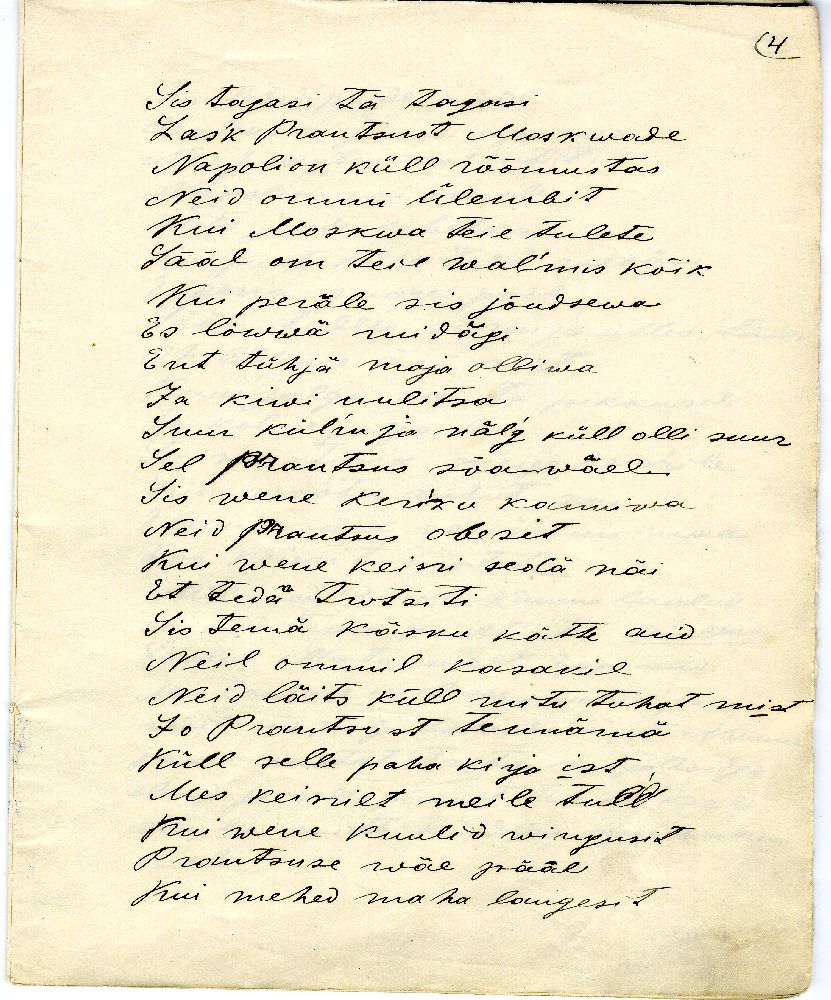 (4
Sis tagasi tä tagasi
Lask Prantsust Moskwade
Napolion küll rõõmustas
Neid ommi ülembit
Kui Moskwa teie tulete
Sääl om teil wal'mis kõik
Kui peräle sis jõudsewa
Es löwwä midägi
Ent tühjä maja olliwa
Ja kiwi uulitsa
Suur kül'm ja nälg küll olli suur
Sel Prantsus sõawäel
Sis wene keriko kanniwa
Neid Prantsus obesit
Kui wene keisri sedä näi
Et tedä trotsiti
Sis temä käsku kätte and
Neil ommil kasakil
Neid läits küll mitu tuhat mist
Jo Prantsust tennämä
Küll selle paha kirja ist
Mes keisrilt meile tull
Kui wene kuulid wingusit
Prantsuse wäe pääl
Kui mehed maha langesit